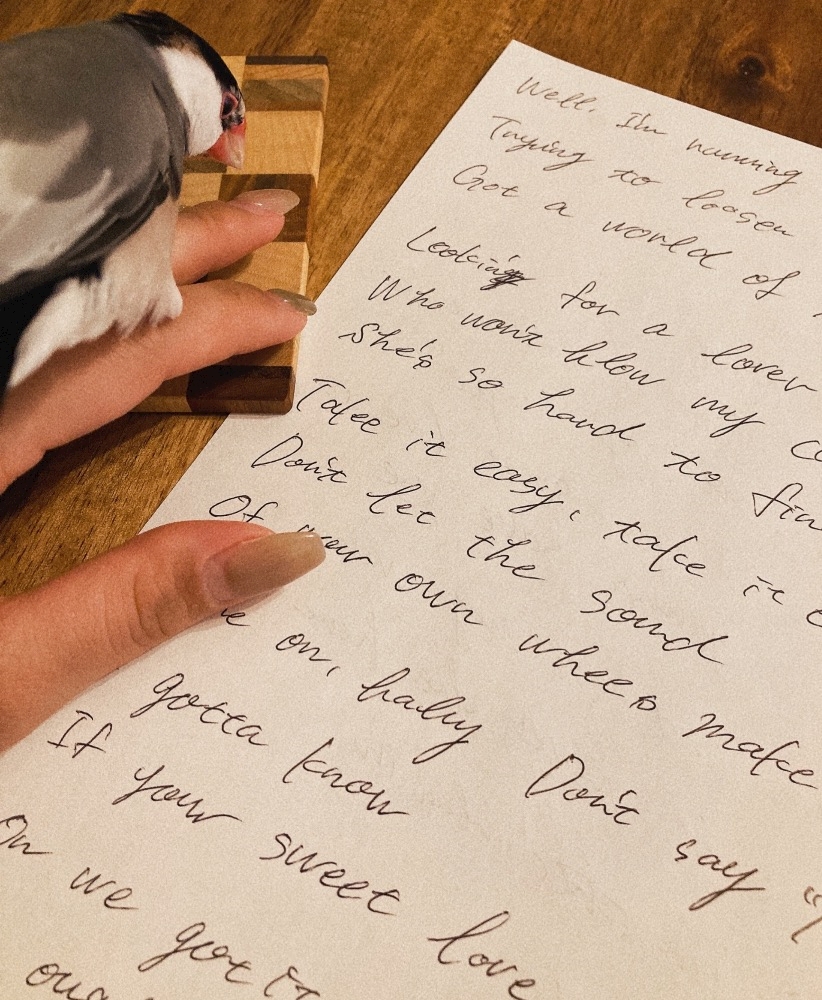 Well, I'm running
Trying to loosen
Got a world of
Looking for a lover
Who won't blow my co
She's so hard to fin
Take it easy, take it e
Don't let the sound
Of your own wheels make
e on, baby Don't say "
gotta know
If your sweet love
On we got it